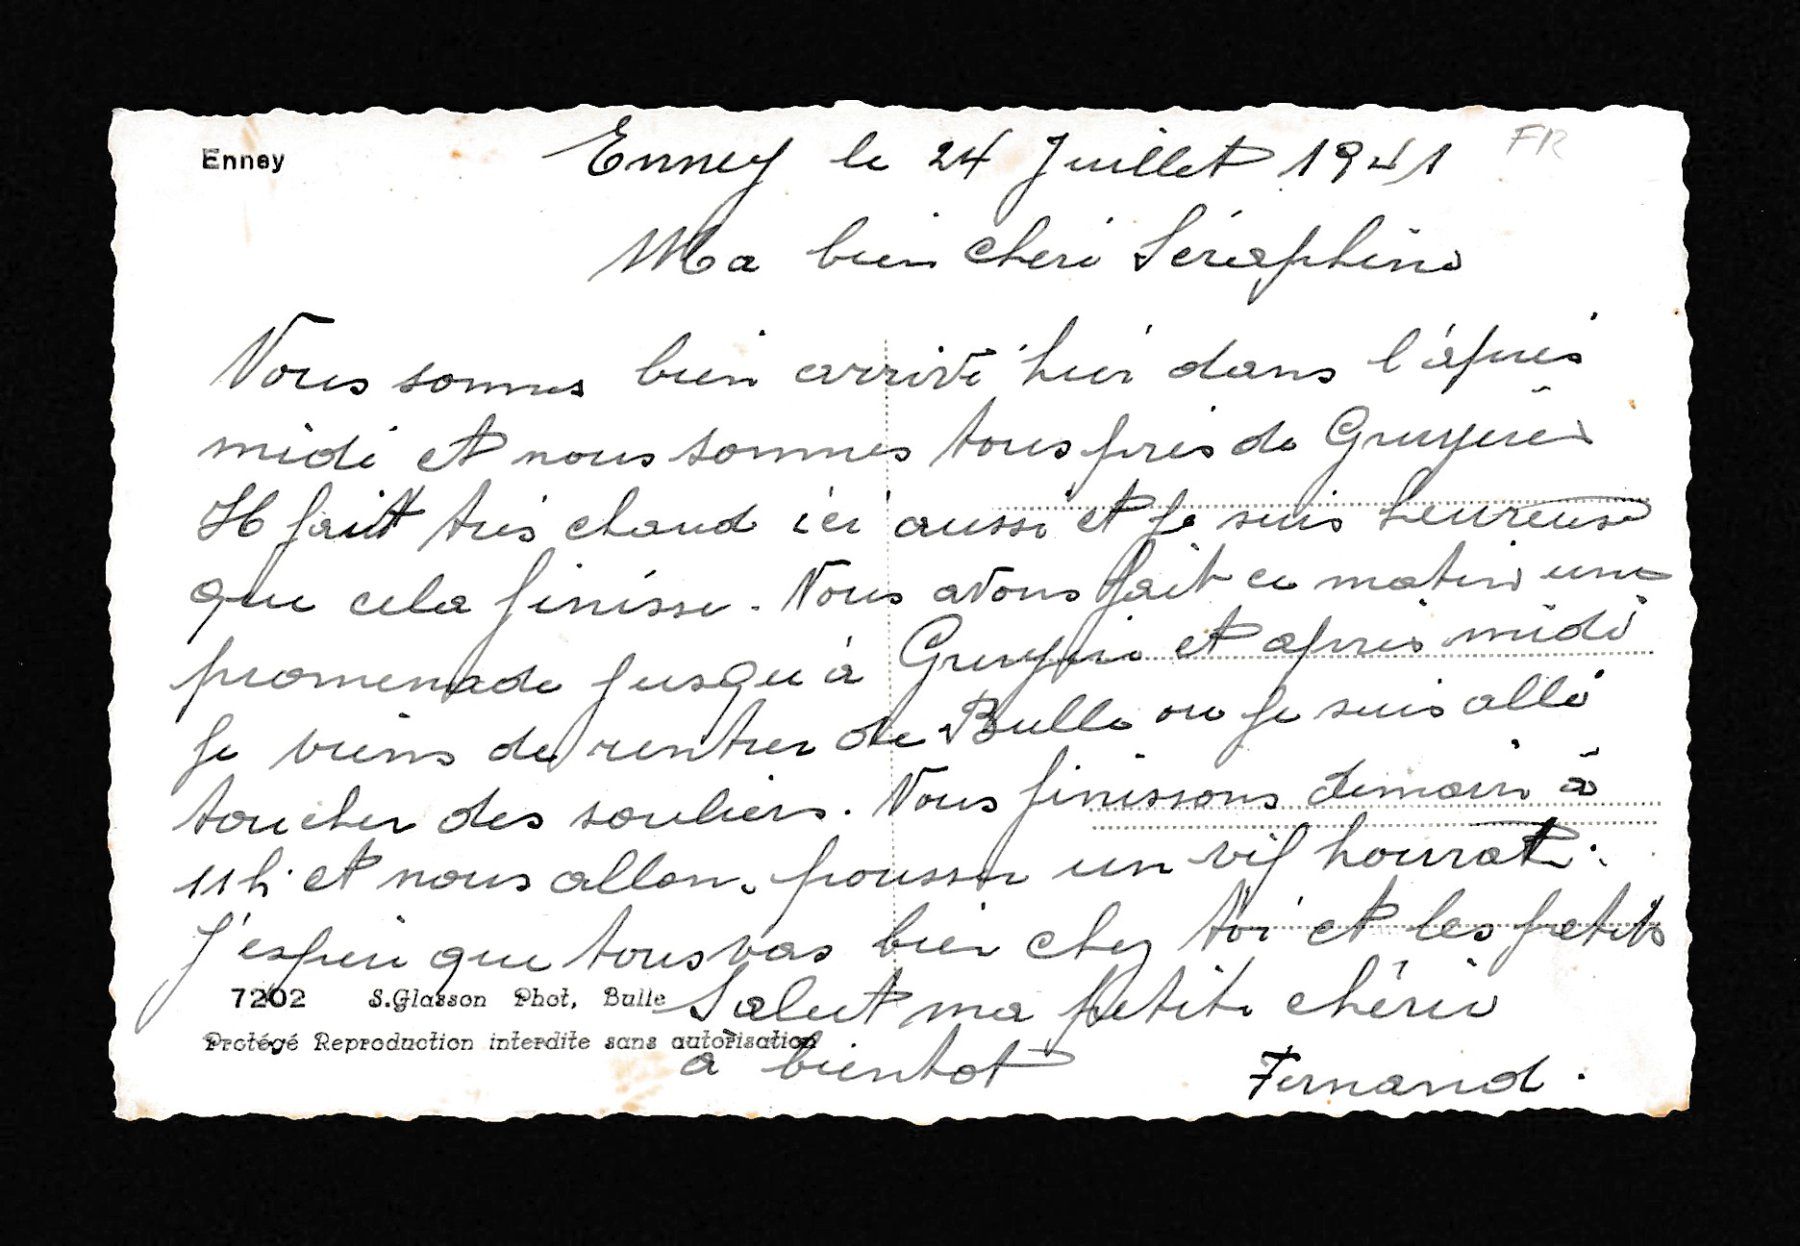 Enney
FR
Enney le 24 Juillet 1941
Ma bien cheri Séraphine
Nous sommes bien arrivé hier dans l'après
midi et nous sommes tous près de Gruyère
Il fait très chaud ici aussi et je suis heureuse
que cela finisse. Nous avons fait ce matin une
promenade jusqu'à Gruyère et après midi
je viens de rentrer de Bulle ou je suis allé
toucher des souliers. Nous finissons demain à
11h. et nous allons pousser un vif hourat.
J'espère que tous vas bien chez toi et les petits
7202 S. Glasson Phot, Bulle
Salut ma petite chérie
Protégé Reproduction interdite sans autorisation
a bientot
Fernand.